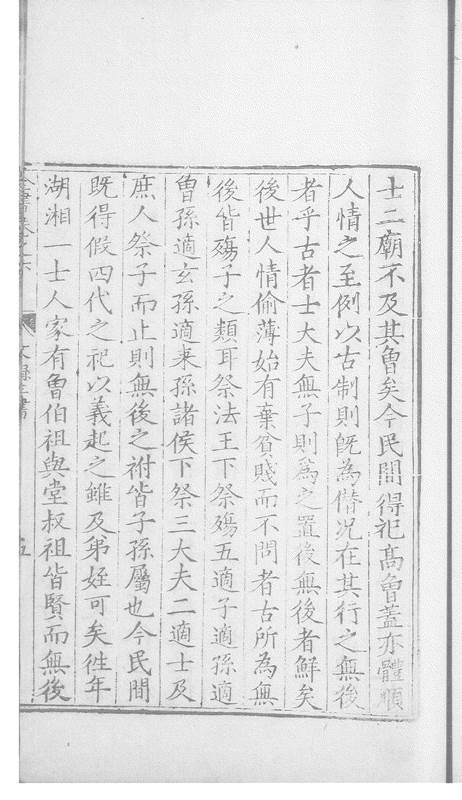 士二廟不及其曾矣今民間得祀高曾蓋亦體順
人情之至例以古制則旣為僣况在其行之無後
者乎古者士大夫無子則為之置後無後者鮮矣
後世人情偷薄始有棄貧賤而不問者古所為無
後皆殤子之類耳祭法王下祭殤五適子適孫適
曾孫適玄孫適来孫諸侯下祭三大夫二適士及
庶人祭子而止則無後之祔皆子孫屬也今民間
既得假四代之祀以義起之雖及弟姪可矣徃年
湖湘一士人家有曾伯祖與堂叔祖皆賢而無後
全書卷之六
五